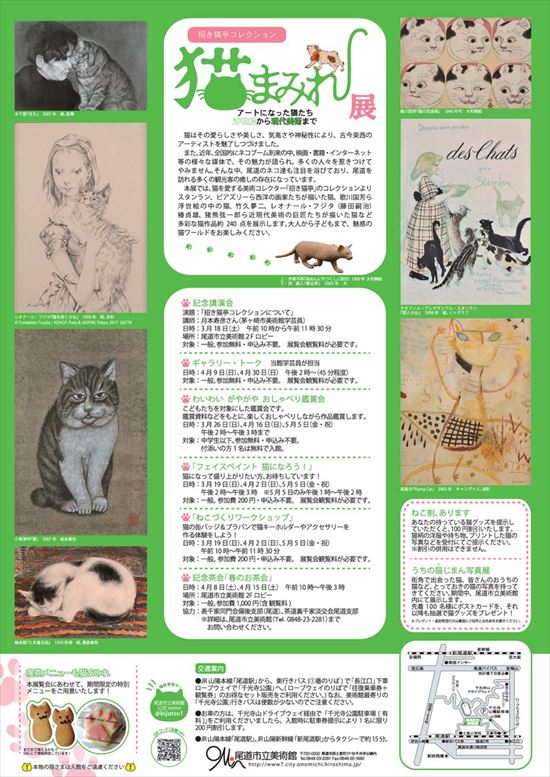 招き猫亭コレクション
猫まみれ展
アートになった猫たち
浮世絵から現代美術まで
猫はその愛らしさや美しさ、気高さや神秘性により、古今東西の
アーティストを魅了しつづけました。
また、近年、全国的にネコブーム到来の中、映画・書籍・インターネット
等の様々な媒体で、その魅力が語られ、多くの人々を惹きつけて
やみません。そんな中、尾道のネコ達も注目を浴びており、尾道を
訪れる多くの観光客の癒しの存在になっています。
本展では、猫を愛する美術コレクター「招き猫亭」のコレクションより
スタンラン、ビアズリーら西洋の画家たちが描いた猫、歌川国芳ら
浮世絵の中の猫、竹久夢二、レオナール・フジタ（藤田嗣治）
椿貞雄、猪熊弦一郎ら近現代美術の巨匠たちが描いた猫など
多彩な猫作品約240点を展示します。大人から子どもまで、魅惑の
猫ワールドをお楽しみください。
木下晋「甘え」 2007年 紙、鉛筆
レオナール・フジタ「猫を抱く少女」 1950年 紙、水彩
小藤清作「猫」 2007年 絹本着色
des Chats
高島沙「Flying Cat」 2003年 キャンヴァス、油彩
記念講演会
演題：「招き猫亭コレクションについて」
講師：月本寿彦さん（茅ヶ崎市美術館学芸員）
日時：3月18日（土） 午前10時から午前11時30分
場所：尾道市立美術館2Fロビー
対象：一般。参加無料・申込み不要。 展覧会観覧料が必要です。
ギャラリー・トーク 当館学芸員が担当
日時：4月9日（日）、4月30日（日） 午後2時～（45分程度）
対象：一般。参加無料・申込み不要。 展覧会観覧料が必要です。
わいわい がやがや おしゃべり鑑賞会
こどもたちを対象にした鑑賞会です。
鑑賞資料などをもとに、楽しくおしゃべりしながら作品鑑賞します。
日時：3月26日（日）、4月16日（日）、5月5日（金・祝）
午後2時～午後3時まで
対象：中学生以下。参加無料・申込み不要。
付添いの方1名は無料で入館。
「フェイスペイント 猫になろう！」
猫になって盛り上がりたい方、お待ちしています！
日時：3月19日（日）、4月2日（日）、5月5日（金・祝）
午後2時～午後3時 ※5月5日のみ午後1時～午後2時
対象：一般。参加費200円・申込み不要。 展覧会観覧料が必要です。
「ねこづくりワークショップ」
猫の缶バッジ＆プラバンで猫キーホルダーやアクセサリーを
作る体験をしよう！
日時：3月19日（日）、4月2日（日）、5月5日（金・祝）
午前10時～午前11時30分
対象：一般。参加費200円・申込み不要。 展覧会観覧料が必要です。
記念茶会「春のお茶会」
日時：4月8日（土）、4月15日（土） 午前10時～午後3時
場所：尾道市立美術館2Fロビー
対象：一般。参加費1,000円（含観覧料）
協力：表千家同門会備後支部（尾道）、茶道裏千家淡交会尾道支部
※詳細は、尾道市立美術館（Tel. 0848-23-2281）まで
お問い合わせください。
ねこ割、あります
あなたの持っている猫グッズを提示し
ていただくと、100円割引いたします。
猫柄の洋服や持ち物、プリントした猫の
写真などを受付にてご提示ください。
※割引の併用はできません。
うちの猫じまん写真展
街角で出会った猫、皆さんのおうちの
猫など、とっておきの猫の写真を持って
きてください。期間中、尾道市立美術館
内にて展示します。
先着100名様にポストカードを、それ
以降も抽選で猫グッズをプレゼント！
喫茶メニューも猫まみれ
本展覧会にあわせて、期間限定の特別
メニューをご用意いたします！
本物の猫さまは入館をご遠慮ください
尾道市立美術館
公式twitter
@bijutsu1
交通案内
●JR山陽本線「尾道駅」から、東行きバス（①番のりば）で「長江口」下車
ロープウェイで「千光寺公園」へ。（ロープウェイのりばで「往復乗車券＋
観覧券」のお得なセット販売をご利用ください。）なお、美術館最寄りの
「千光寺公園」行きバスは便数が少ないのでご注意ください。
●お車の方は、千光寺山ドライブウェイ経由で「千光寺公園駐車場（有
料）」をご利用くださいましたら、入館時に駐車券提示により1名に限り
200円割引します。
●JR山陽本線「尾道駅」、JR山陽新幹線「新尾道駅」からタクシーで約15分。
尾道市立美術館
〒722-0032 尾道市西土堂町17-19 千光寺公園内
Tel.0848-23-2281 Fax.0848-20-1682
http://www7.city.onomichi.hiroshima.jp/